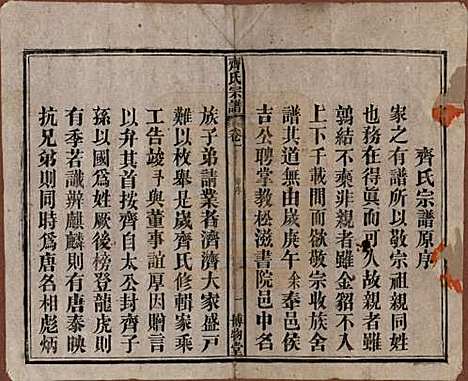 齊氏宗譜原序
家之有譜所以敬宗祖親同姓
也務在得眞而人可入故親者雖
鶉結不棄非親者雖金貂不入
上下千載間而欲敬宗收族舍
譜其道無由歲庚午余奉邑侯
吉公聘掌教松滋書院邑中名
齊氏宗譜
卷
一
博物堂
族子弟請業者濟濟大家盛戸
難以枚舉是歲齊氏修輯家乘
工告竣予與董事誼厚因贈言
以弁其首按齊自太公封齊子
孫以國爲姓厥後榜登龍虎則
有季若識辨麒麟則有唐泰映
抗兄弟則同時爲唐名相彪炳